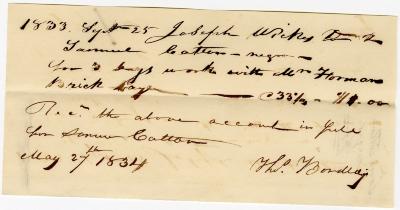 1833 Sept 25 Joseph Wickes Dr to
Samuel Catton - negro -
for 3 days work with Mr Forman
Brick layer @ 33 1/3 - $1.00
Rec.d the above account in full
for Samuel Catton
May 27th 1834 Thos.